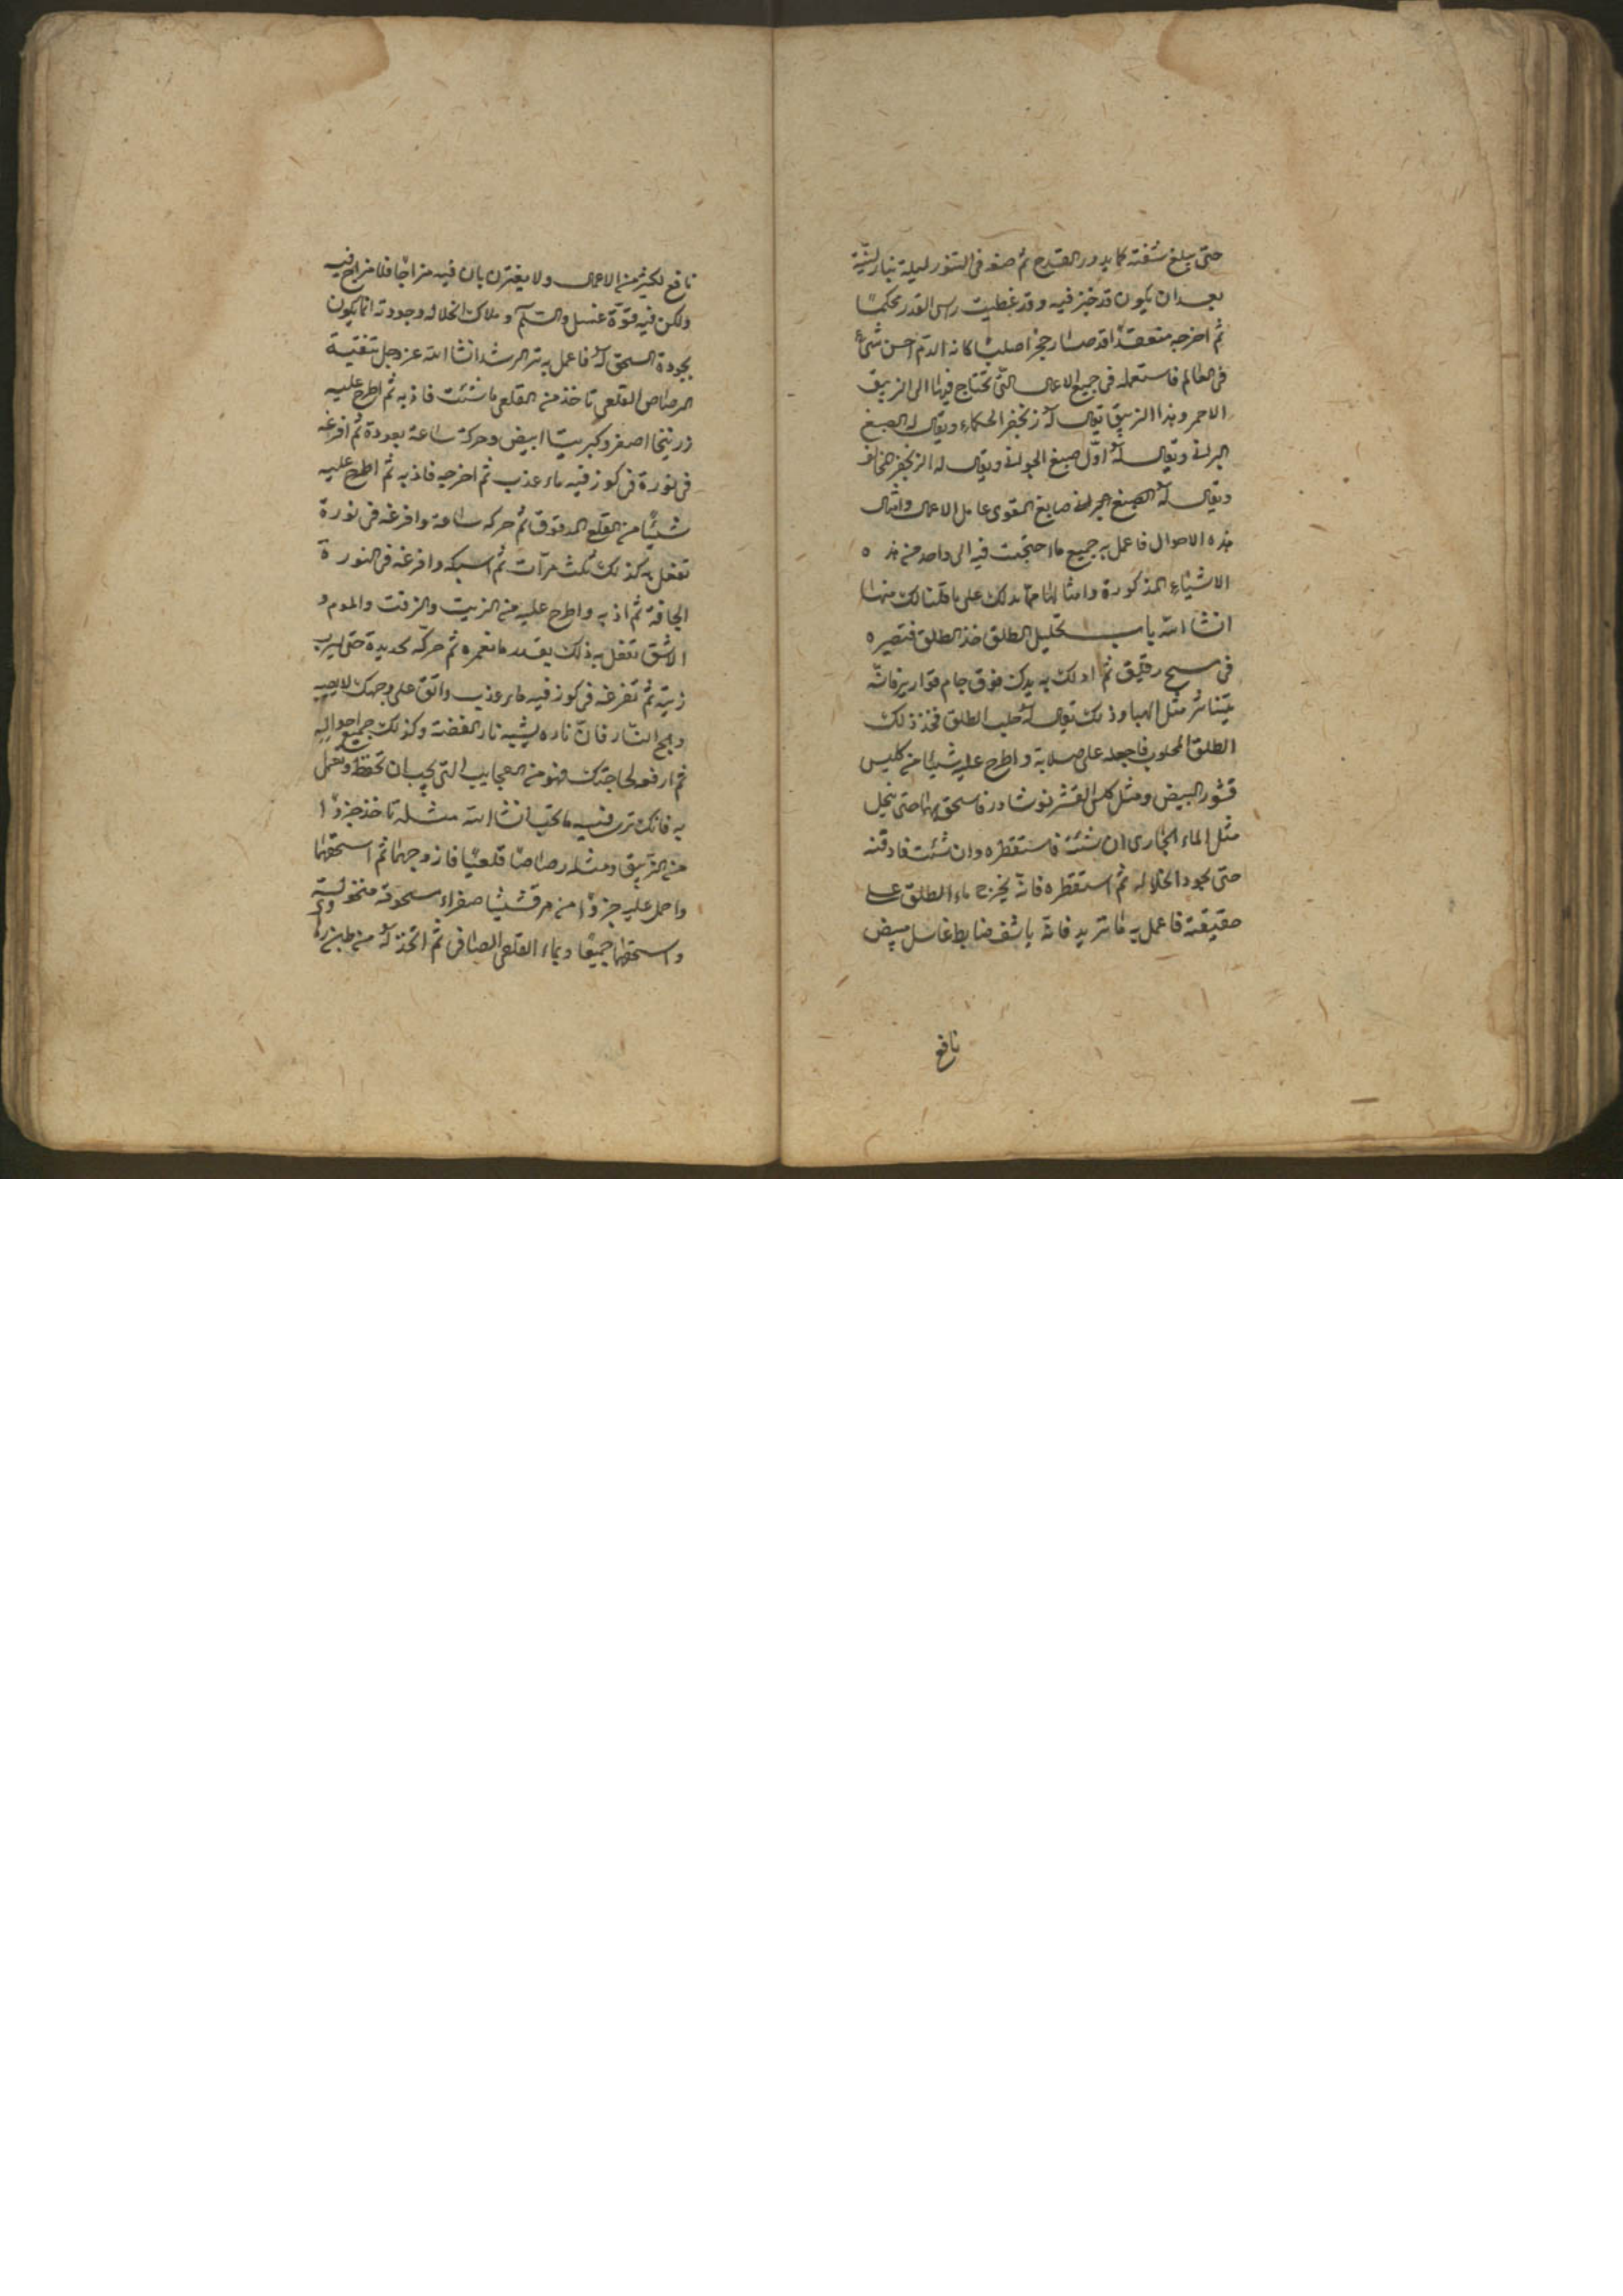 حتى يبلغ شفته كما يدور القدح ثم ضعه فى التنور ليلة بنار لينة
بعد ان يكون قد خبز فيه وقد غطيت راس القدر محكما
ثم اخرجه منعقدا قد صار حجرا صلبا كانه الدم احسن شىء
فى العالم فاستعمله فى جميع الاعمال التى تحتاج فيها الى الزيبق
الاحمر وهذا الزيبق يقال له زنجفر الحكماء ويقال له الصبغ
البرانى ويقال له اول صبغ الجوانى ويقال له الزنجفر
ويقال له الصبغ البرانى صابغ المقوى عامل الاعمال وامثال
هذه الاحوال فاعمل به جميع ما احتجت فيه الى واحد من هذه
الاشياء المذكورة وامثالها مما يدلك على ما قلنا لك منها
انشا الله باب تحليل الطلق خذ الطلق فتصيره
فى مسح رقيق ثم ادلك به يدك فوق جام قوارير فانه
يتناثر مثل الهبا وذلك يقال له حلب الطلق فخذ ذلك
الطلق المحلوب فاجعله على صلاية واطرح عليه شيئا من كلس
قشور البيض ومثل كلس القشر نوشادر فاسحق بهما حتى ينحل
مثل الماء الجارى ان شئت فاستقطره وان شئت فادفنه
حتى يجود انحلاله ثم استقطره فانه يخرج ماء الطلق على
حقيقته فاعمل به ما تريد فانه ناشف ضابط غاسل مبيض
نافع
نافع لكثير من الاعمال ولا يغترن بان فيه مزاجا فلا مزاج فيه
ولكن فيه قوة غسل والسلم وملاك انحلاله وجودته انما يكون
بجودة السحق له فاعمل به تر الرشد انشا الله عز وجل تنقية
الرصاص القلعى تاخذ من القلعى ما شئت فاذبه ثم اطرح عليه
زرنيخا اصفر وكبريتا ابيض وحركه ساعة بعودة ثم افرغه
فى نورة فى كوز فيه ماء عذب ثم اخرجه فاذبه ثم اطرح عليه
شيئا من القلع المدقوق ثم حركه ساعة وافرغه فى نورة
تفعل به كذلك ثلث مرات ثم اسبكه وافرغه فى النورة
الجافة ثم اذبه واطرح عليه من الزيت والزفت والموم و
الاشق تفعل به ذلك بقدر ما تغمره ثم حركه بحديدة حتى يشرب
زيته ثم تفرغه فى كوز فيه ماء عذب واتق على وجهك لا يصيبه
وهج النار فان ناره يشبه نار الفضة وكذلك جميع احواله
ثم ارفعه لحاجتك فهو من العجايب التى يجب ان تحفظ وتعمل
به فانك ترى فيه ما تحب انشا الله مثله تاخذ جزوا
من الزيبق ومثله رصاصا قلعيا فازوجهما ثم اسحقهما
واحمل عليه جزوا من مرقشيشا صفراء مسحوقة منخولة
واسحقهما جميعا وبماء القلعى الصافى ثم اتخذ له من طين